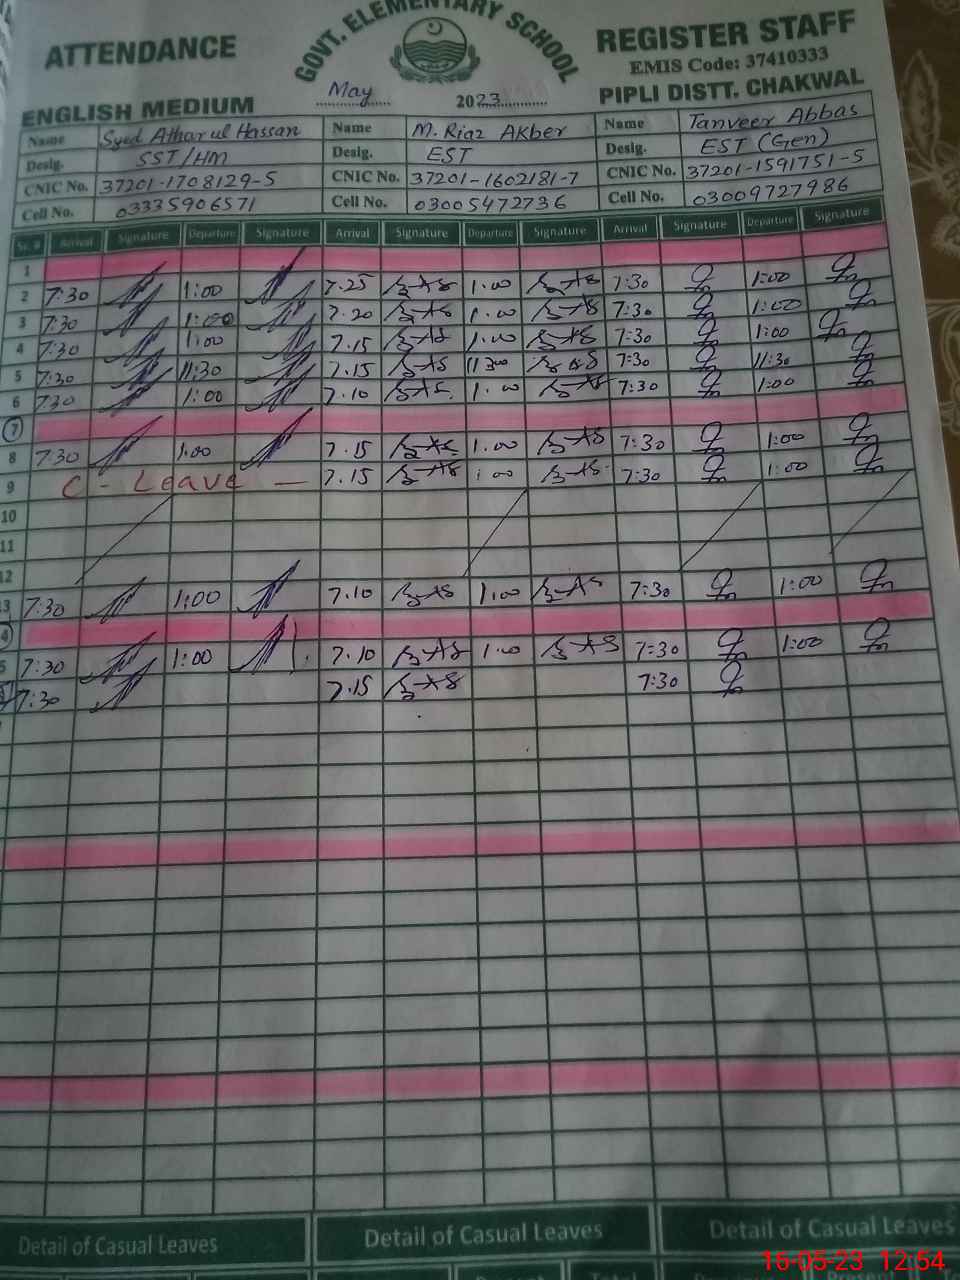 GOVT. ELEMENTARY SCHOOL
ATTENDANCE
REGISTER STAFF
EMIS Code: 37410333
ENGLISH MEDIUM
May
2023
PIPLI DISTT. CHAKWAL
Name Syed Athar ul Hassan Name M. Riaz Akber Name Tanveer Abbas
Desig. SST/HM Desig. EST Desig. EST (Gen)
CNIC No. 37201-1708129-5 CNIC No. 37201-1602181-7 CNIC No. 37201-1591751-5
Cell No. 03335906571 Cell No. 03005472736 Cell No. 03009727986
Sr. # Arrival Signature Departure Signature Arrival Signature Departure Signature Arrival Signature Departure Signature
1
2 7:30 1:00 7.25 1.00 7:30 1:00
3 7:30 1:00 7.20 1.00 7:30 1:00
4 7:30 1:00 7.15 1.00 7:30 1:00
5 7:30 11:30 7.15 7:30 11:30
6 7:30 1:00 7.10 1.00 7:30 1:00
7
8 7:30 1.00 7.15 1.00 7:30 1:00
9 C - Leave - 7.15 1:00 7:30 1:00
10
11
12
13 7:30 1:00 7.10 1.00 7:30 1:00
4
5 7:30 1:00 7.10 1.00 7:30 1:00
7:30 7.15 7:30
Detail of Casual Leaves Detail of Casual Leaves Detail of Casual Leaves
16-05-23 12:54